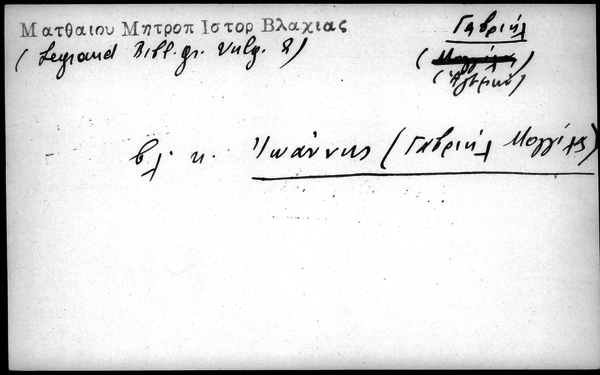 Ματθαιου Μητροπ Ιστορ Βλαχιας
(Legrand Bibl. gr. Vulg. 2)
Γαβριήλ
(Μογγίλας)
βλ. κ. Ἰωάννης (Γαβριήλ Μογγίλας)